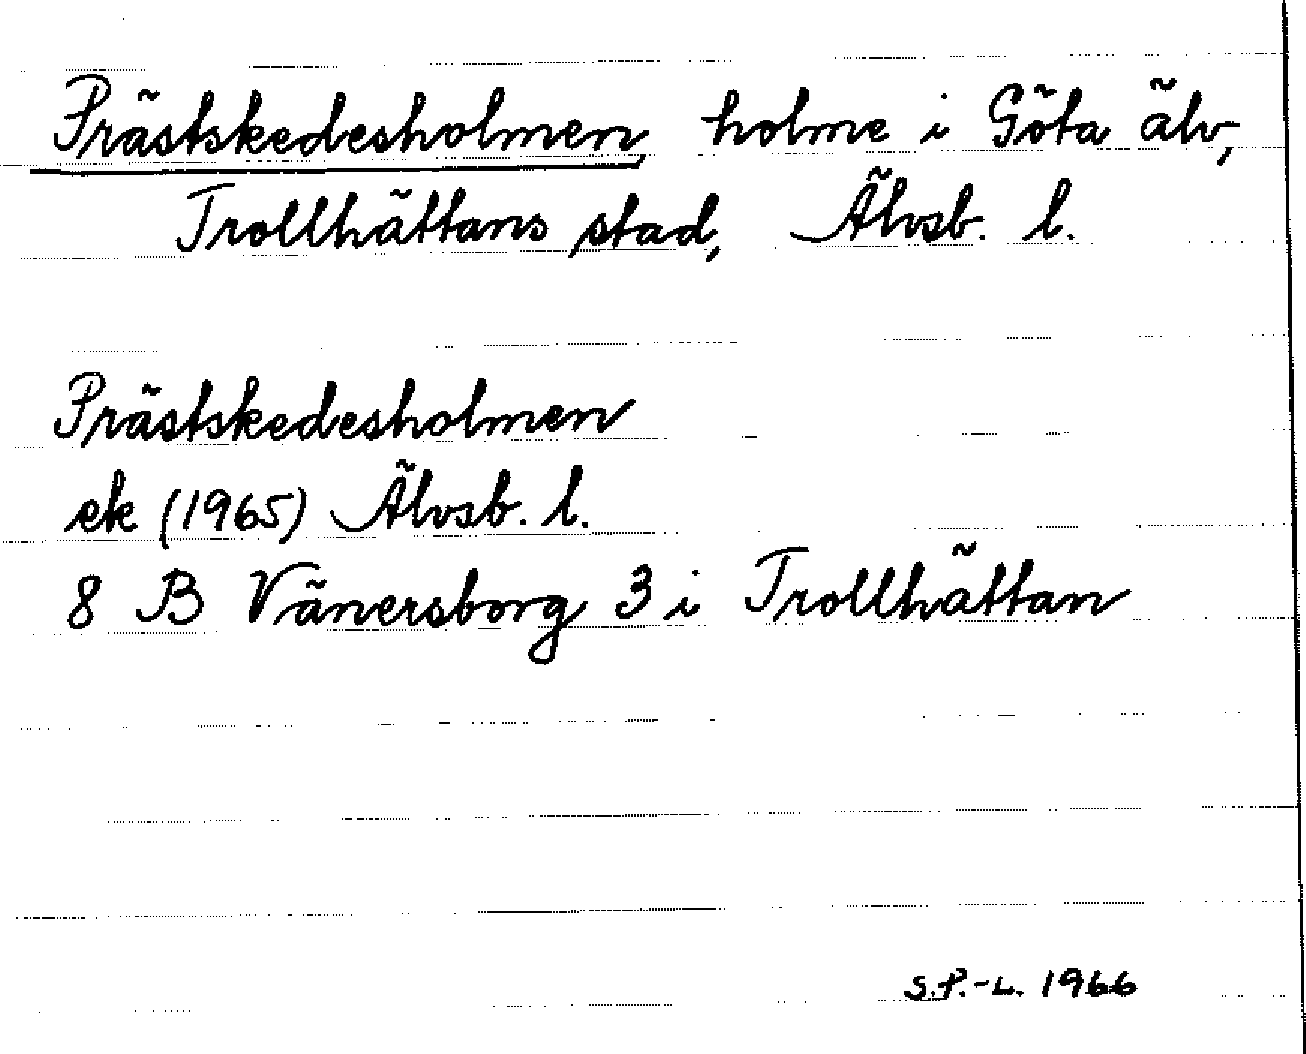 Prästskedesholmen, holme i Göta älv,
Trollhättans stad, Älvsb. l.
Prästskedesholmen
ek (1965) Älvsb. l.
8 B Vänersborg 3 i Trollhättan
S.P.-L. 1966